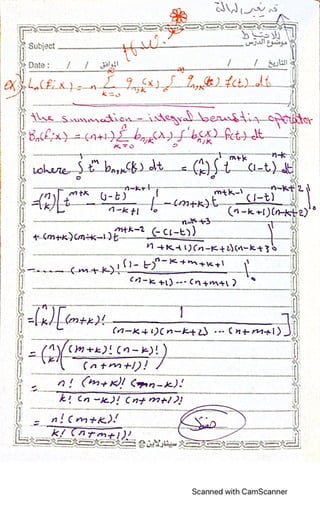 H.W.
Subject موضوع الدرس
Date : / / الموافق / / التاريخ
ex) Ln(f; x) = n ∑ k=0 ∞ qn,k(x) ∫ qn,k(t) f(t) dt
the summation - integral bernstin operator
Bn(f; x) = (n+1) ∑ k=0 n bn,k(x) ∫ bn,k(x) f(t) dt
where ∫ t^m bn,k(t) dt = (n k) ∫ t^m+k (1-t)^n-k dt
=(n k)[t^m+k (1-t)^n-k+1 / n-k+1 |₀¹ - (m+k) t^m+k-1 (1-t)^n-k+2 / (n-k+1)(n-k+2) |₀¹
+ (m+k)(m+k-1) t^m+k-2 (-(1-t))^n-k+3 / n-k+1)(n-k+2)(n-k+3 |₀¹
-..... (m+k)! (1-t)^n-k+m+k+1 / (n-k+1)....(n+m+1) |₀¹
=(n k)[(m+k)! 1 / (n-k+1)(n-k+2) ... (n+m+1)]
= (n k)((m+k)! (n-k)! / (n+m+1)!)
= n! (m+k)! (n-k)! / k! (n-k)! (n+m+1)!
= n! (m+k)! / k! (n+m+1)!
Scanned with CamScanner